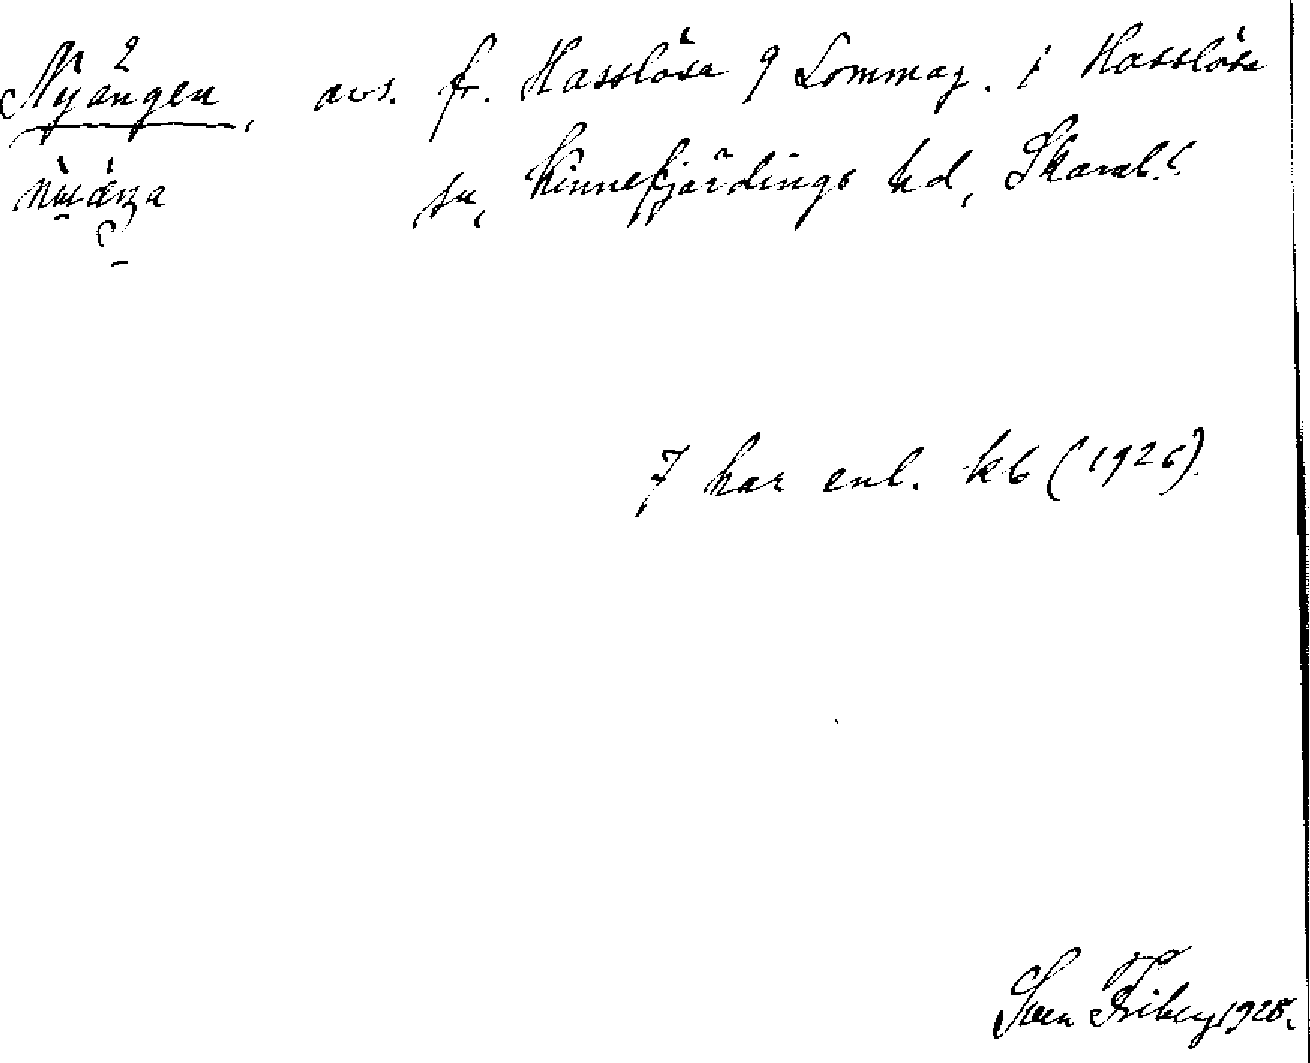 Nyängen, avs. fr. Hasslösa 9 Lommag. i Hasslösa
sn, Kinnefjärdings hd, Skarab. l.
7 har enl. kb (1926).
Sven Friberg 1928.